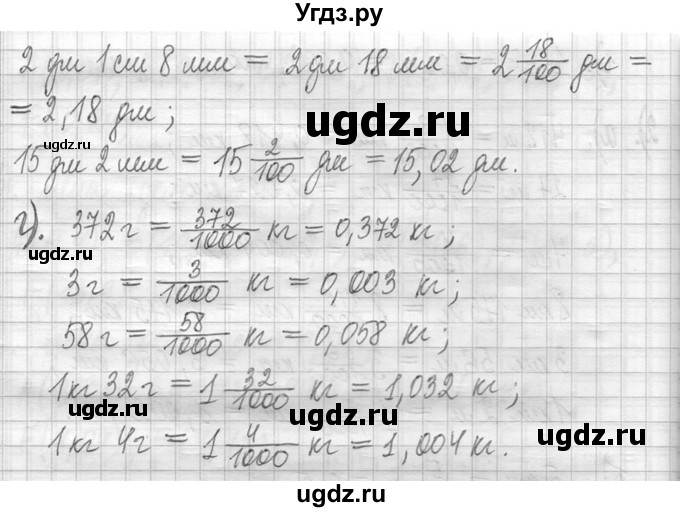 Угдз.ру
2 дм 1 см 8 мм = 2 дм 18 мм = 2 18/100 дм =
= 2,18 дм ;
ugdz.ru
15 дм 2 мм = 15 2/100 дм = 15,02 дм.
г). 372 г = 372/1000 кг = 0,372 кг ;
ugdz.ru
ugdz.ru
3 г = 3/1000 кг = 0,003 кг ;
58 г = 58/1000 кг = 0,058 кг ;
ugdz.ru
1 кг 32 г = 1 32/1000 кг = 1,032 кг ;
ugdz.ru
ugdz.ru
1 кг 4 г = 1 4/1000 кг = 1,004 кг.
ugdz.ru